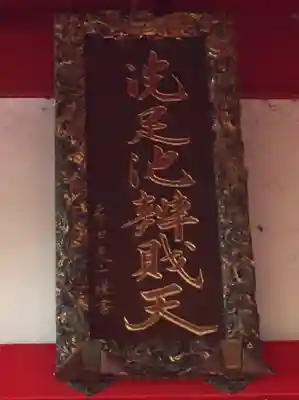 洗足池辨財天